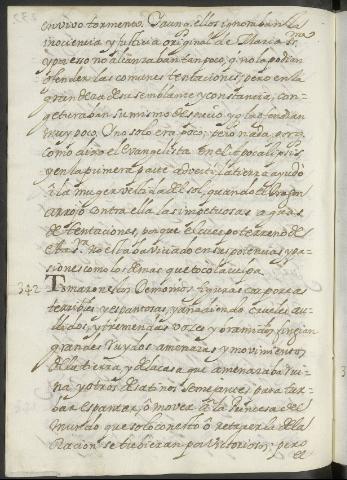 en vivo tormento. Y aunq. ellos ignoraban la
inociencia y justicia original de Maria SS.ma
y por eso no alcanzaban tampoco, q. no la podian
ofender las comunes tentaciones, pero en la
grandeza de su semblante y constancia, con-
geturaban su mismo desprecio y q. la ofendian
muy poco. No solo era poco; pero nada, porq.
como dijo el evangelista en el Apocalipsis
y en la primera parte adverti la tierra ayudó
á la muger vestida del sol, quando el Dragon
arrojó contra ella las impetuosas aguas
de tentaciones, porque el cuerpo terreno de
esta S.ra no estaba viciado en sus potencias y pa-
siones como los demas que tocó la culpa.
342 Tomaron los Demonios figuras corporeas
terribles y espantosas, y añadiendo crueles au-
llidos, y tremendas voces y bramidos, fingian
grandes ruydos, amenazas y movimientos
de la tierra, y de la casa que amenazaba rui-
na, y otros desatinos semejantes, para tur-
bar, espantar, ó mover á la Princesa del
mundo que solo con esto ó retraerla de la
oracion se tubieran por victoriosos; pero
el